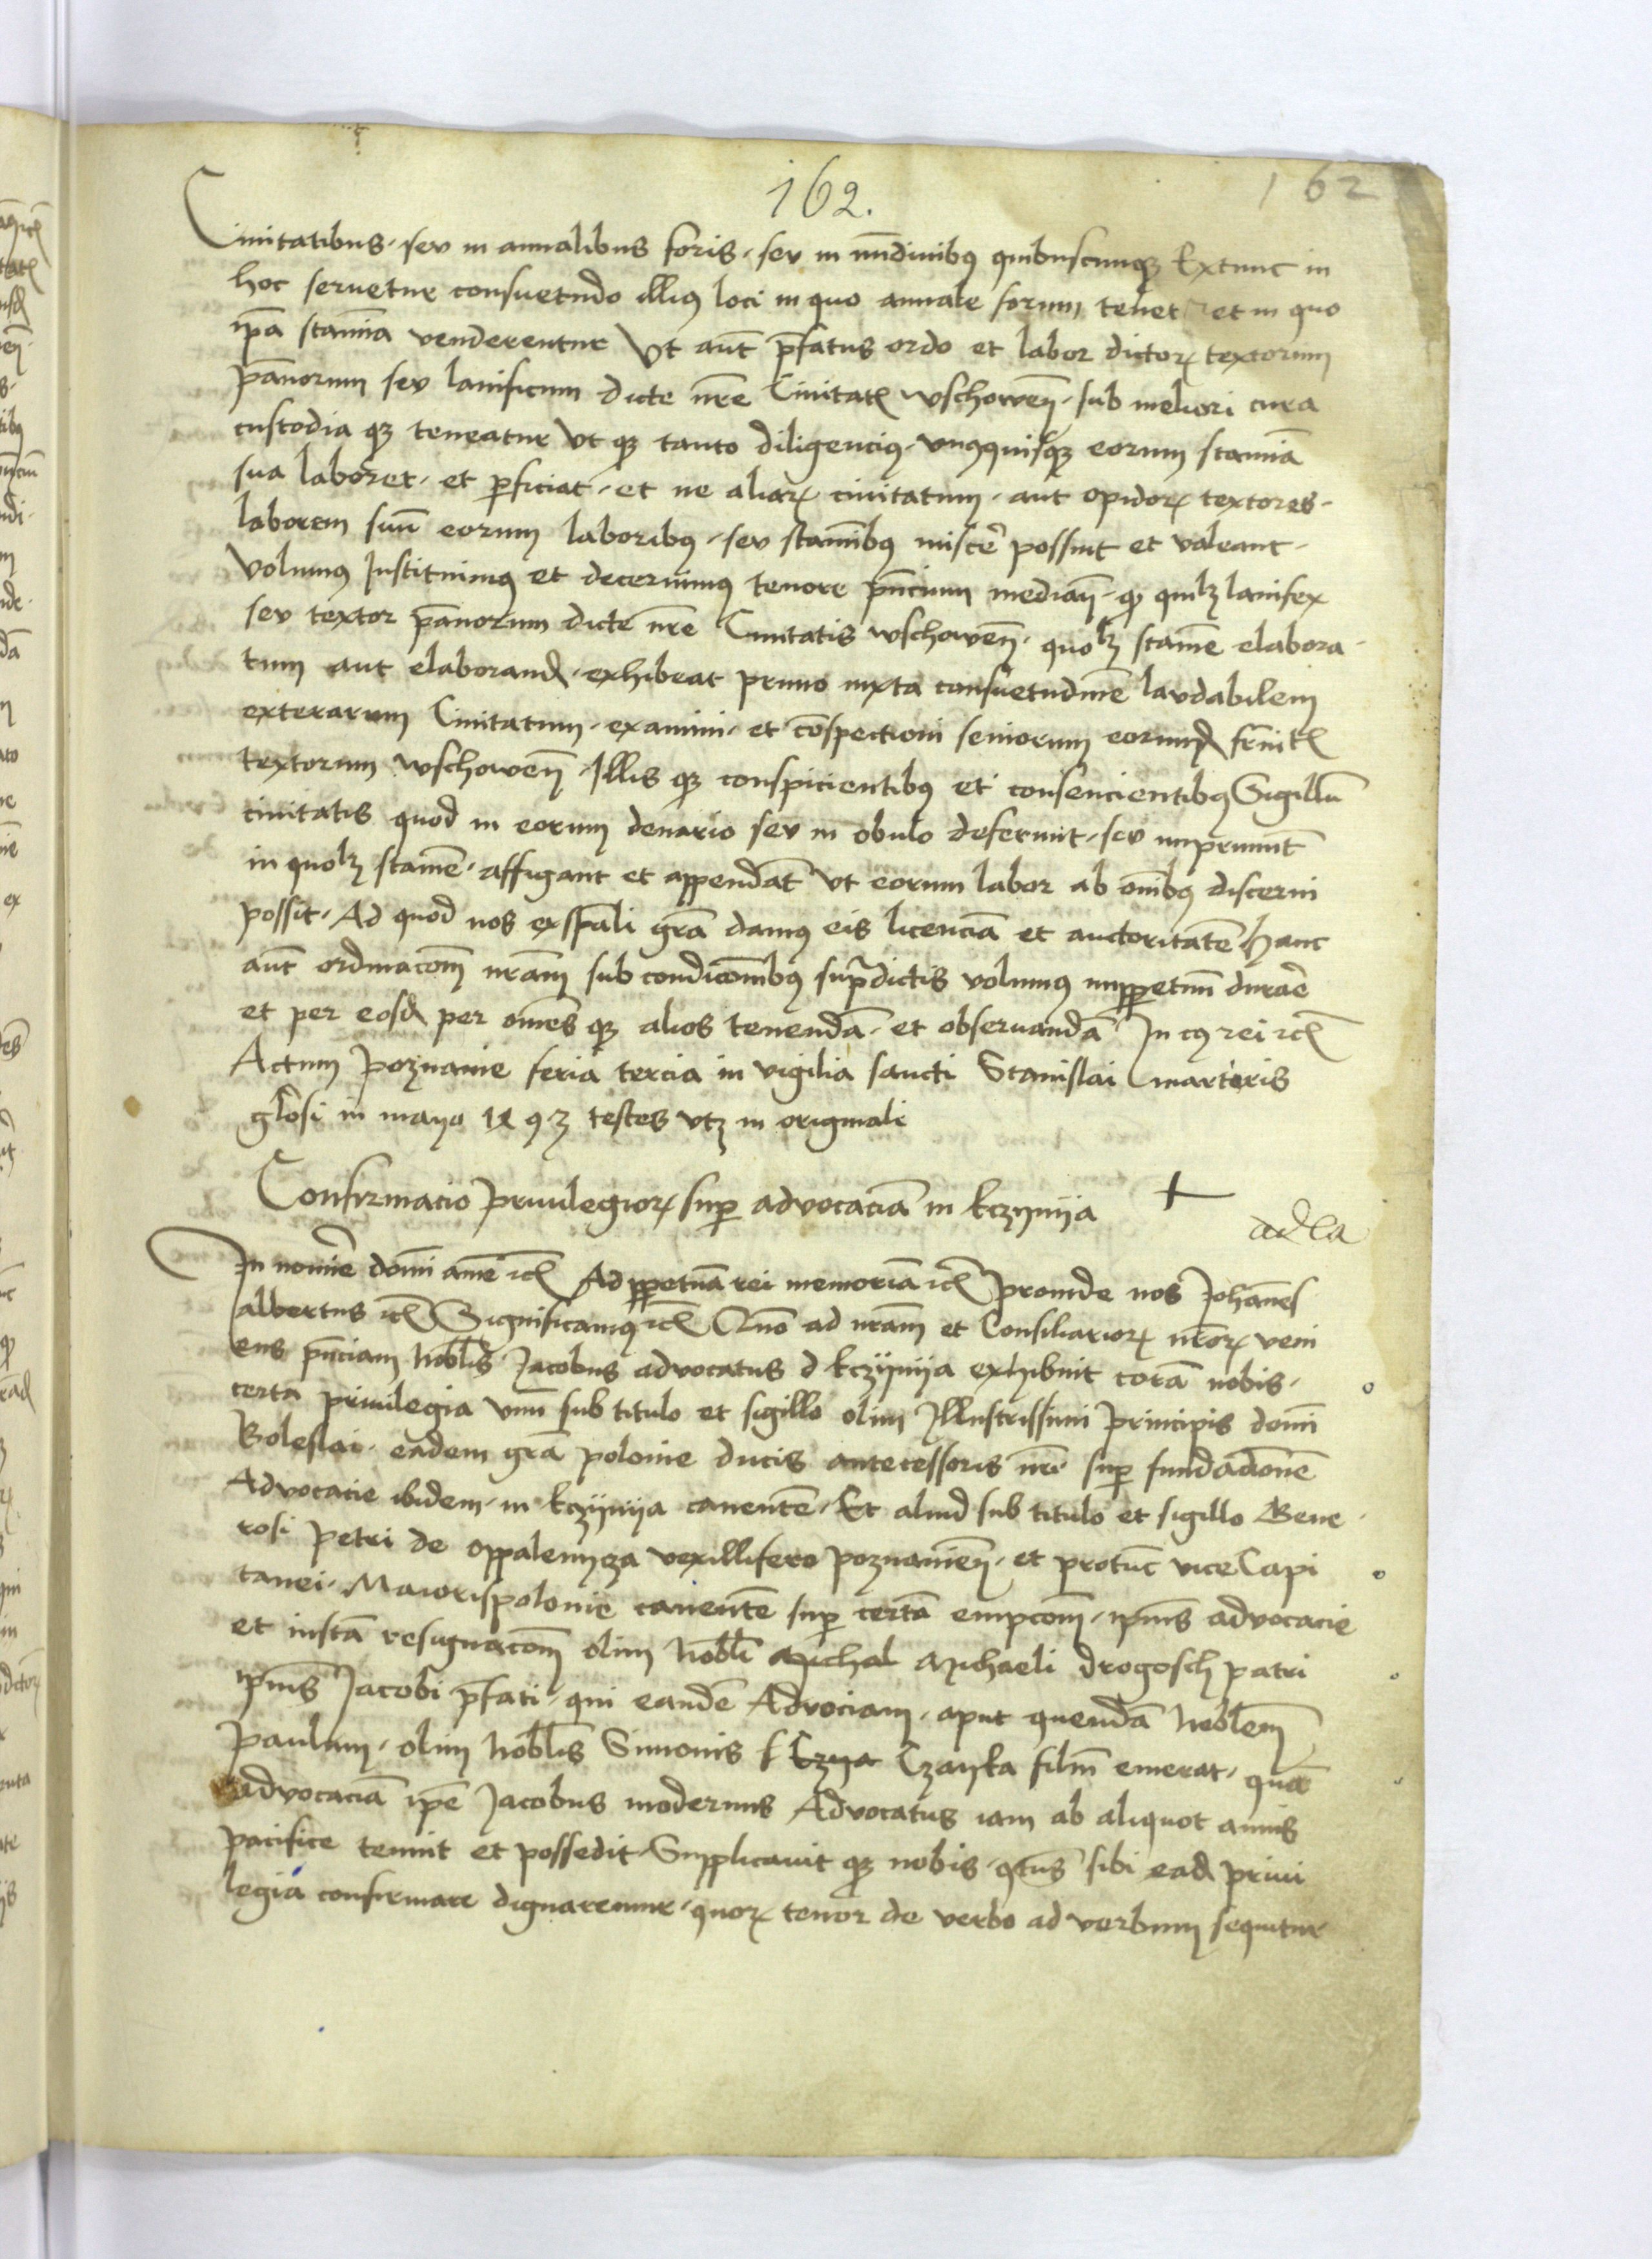 162.
162
Civitatibus · seu in annalibus foris · seu in nūdinibꝰ quibuscunqꝫ Extunc in
hoc seruetur consuetudo illiꝰ loci in quo annale forum tenet̄ et in quo
ip̄a stamīa venderentur Vt aut̄ p̄fatus ordo et labor dictoꝝ textorum
pānorum seu lanificum dicte nr̄e Ciuitatꝭ wschoweñ · sub meliori cura
custodia qꝫ teneatur Vt qꝫ tanto diligenciꝰ · vnꝰquisqꝫ eorum stamīa
sua laboret · et ꝑficiat · et ne aliaꝝ ciuitatum · aut opidoꝝ textores ·
laborem suū eorum laboribꝰ · seu stamībꝰ miscē̄ possint et valeant ·
Volumꝰ Instituimꝰ et decernimꝰ tenore pn̄cium medianῑ · qꝫ quilꝫ lanifex
seu textor pānorum dicte nr̄e Ciuitatis wschoweñ · quolꝫ stamē elabora ·
tum aut elaborand̄ · exhibeat primo iuxta consuetudinē laudabilem
exterarum Ciuitatum · examini · et cōspectioni seniorum eorund̄ fr̄nitꝭ
textorum wschoweñ · Illis qꝫ conspicientibꝰ et consencientibꝰ Sigillū
ciuitatis quod in eorum denario seu in obulo deferunt · seu imprimūt
in quolꝫ stamē · affigant et appendāt Vt eorum labor ab om̄ibꝰ discerni
possit · Ad quod nos ex sp̄ali gr̄a damꝰ eis licenciā et auctoritatē Hanc
aut̄ ordinacōm nr̄am sub condicōmbꝰ sup̄dictis volumꝰ imꝑpetuū durāe
et per eosd̄ per om̄es qꝫ alios tenendā · et obseruandā In cꝰ rei ⁊cꝭ
Actum poznanie feria tercia in vigilia sancti Stanislai marteris
gl̄osi in mayo 1ꝝ 9 3 testes vtꝫ in originali
Confirmacio priuilegioꝝ suꝑ aduocaciā in kczÿnÿa +
In nomīe domī amē ⁊cꝭ Ad ꝑpetuā rei memoriā ⁊cꝭ Proinde nos Johānes
albertus ⁊cꝭ Significamꝰ ⁊cꝭ Quō ad nr̄am et Consiliarioꝝ nr̄oꝝ veni
ens pn̄ciam nobl̄is Jacobus aduocatus d kczÿnÿa exhibuit corā nobis ·
certa priuilegia vnū sub titulo et sigillo olim Illustrissimi principis domī
Boleslai · eadem gr̄a polonie ducis antecessoris nr̄i suꝑ fundacionē
Aduocacie ibidem · in kczÿnÿa cauentē · Et aliud sub titulo et sigillo Gene ·
rosi petri de oppalenycza vexillifero poznanieñ · et protūc vice Capi
tanei · Maiorispolonie cauentē suꝑ certā empcōm · ip̄ius aduocacie
et iustā resignacōm olim nobl̄i michal michaeli drogosch patri
ip̄ius Jacobi p̄fati · qui eandē Aduociam · aput quendā nobl̄em
paulum · olim nobl̄is Simonis Czayka filiū emerat · quā
aduocaciā ip̄e Jacobus modernus Aduocatus iam ab aliquot annis
pacifice tenuit et possedit · Supplicauit qꝫ nobis · qt̄nꝰ sibi ead̄ priui
legia confirmare dignaremur · quoꝝ tenor de verbo ad verbum sequitur